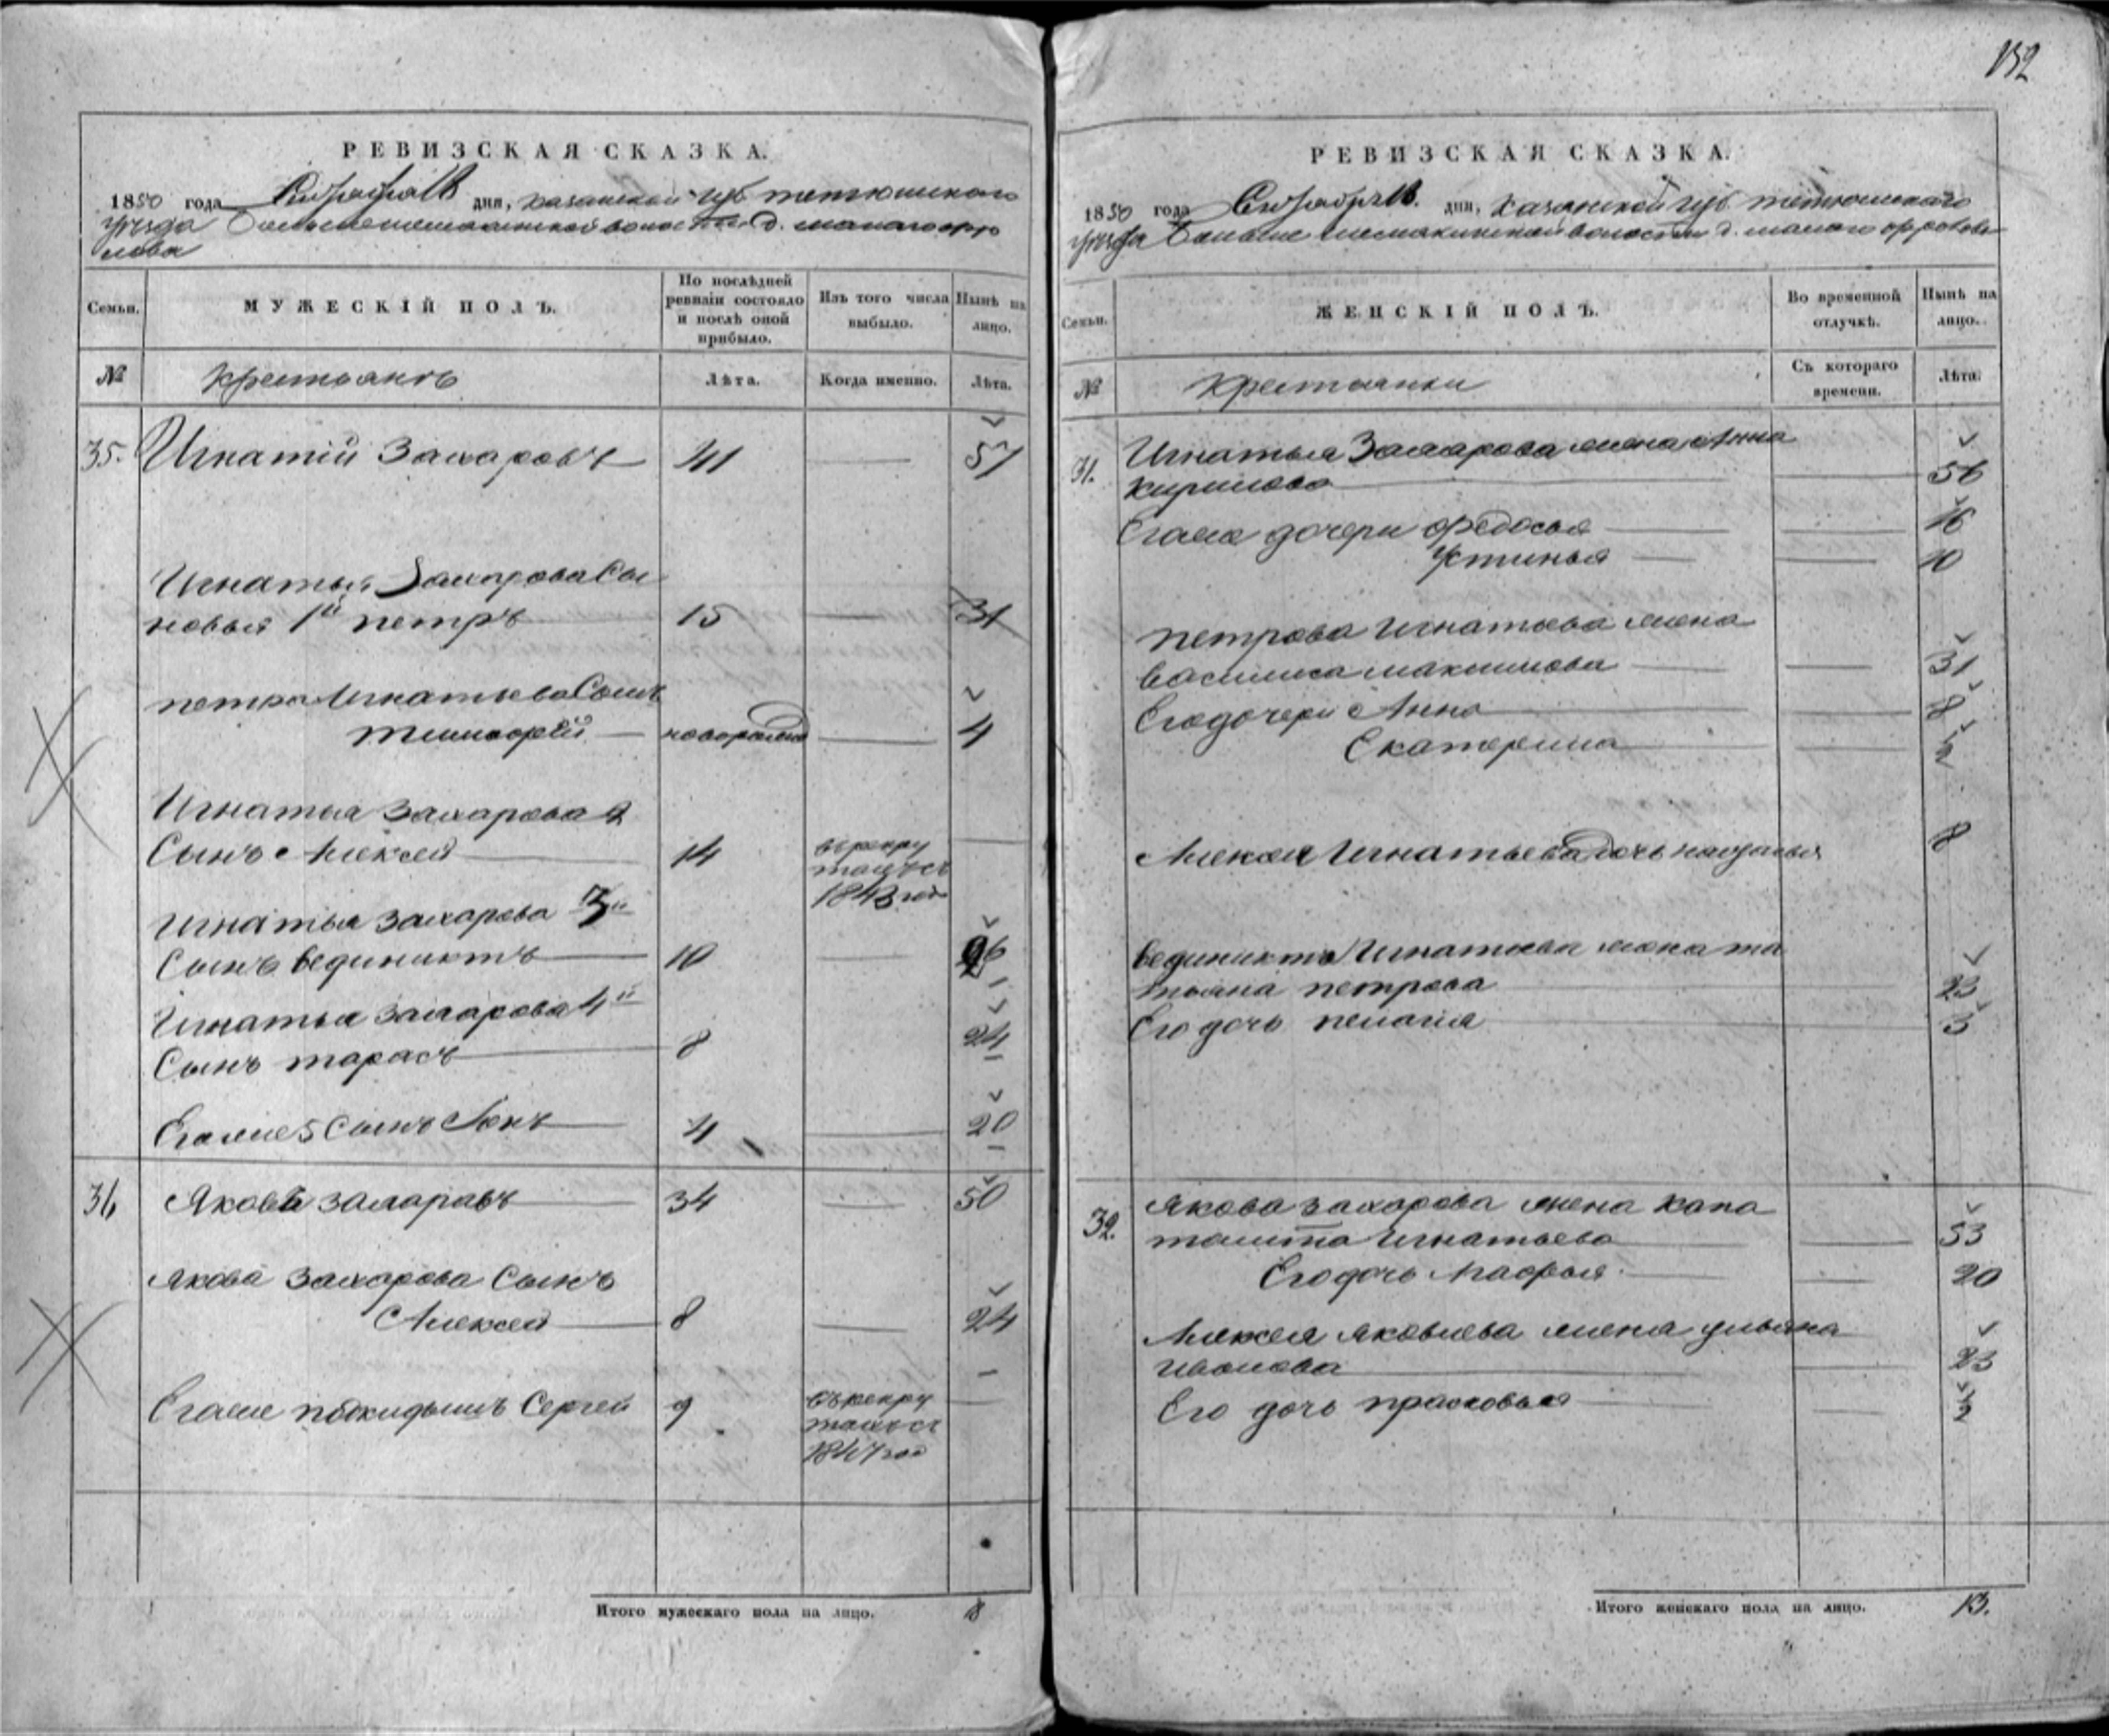 РЕВИЗСКАЯ СКАЗКА.
1850 года дня, казанской губ тетюшскаго
уѣзда волости д. малаго фро
лова
Семьи.
МУЖЕСКІЙ ПОЛЪ.
По послѣдней ревизіи состояло и послѣ оной прибыло.
Изъ того числа выбыло.
Нынѣ на лицо.
№
крестьянъ
Лѣта.
Когда именно.
Лѣта.
35. Игнатій Захаровъ 41 51
Игнатья Захарова сы
новья 1й петръ 15 31
петра Игнатьева Сынъ
тимофѣй новорожд 4
Игнатья захарова 2
Сынъ Алексей 14 въ рекру
тахъ съ
1843 год
Игнатья захарова 3й
Сынъ вединиктъ 10 26
Игнатья захарова 4й
Сынъ тарасъ 8 24
Егоже 5 сынъ 4 20
36 Яковъ захаравъ 34 50
Якова Захарова Сынъ
Алексей 8 24
Егоже подкидышъ Сергей 9 въ рекру
тахъ съ
1847 год
Итого мужескаго пола на лицо. 8
152
РЕВИЗСКАЯ СКАЗКА.
1850 года дня, казанской губ тетюшскаго
уѣзда шемякинской волости д. малаго фролова
Семьи.
ЖЕНСКІЙ ПОЛЪ.
Во временной отлучкѣ.
Нынѣ на лицо.
№
крестьянки
Съ котораго времени.
Лѣта.
31. Игнатья Захарова жена Анна
кирилова 56
Егоже дочери федосья 16
Устинья 10
петрова Игнатьева жена
василиса максимова 31
Его дочери Анна 8
Екатерина ½
Алексея Игнатьева дочь наталья 8
вединикта Игнатьева жена та
тьяна петрова 23
Его дочь пелагия 3
32. Якова захарова жена капи
талина Игнатьева 53
Его дочь Марфья 20
Алексея яковлева жена ульяна
иванова 23
Его дочь прасковья ½
Итого женскаго пола на лицо. 13.